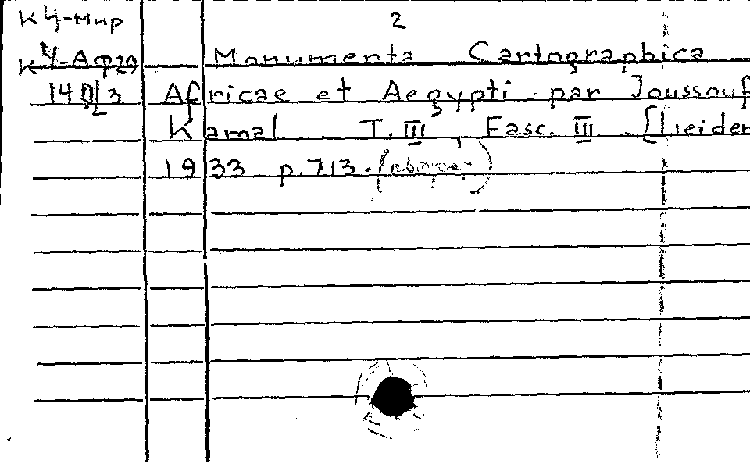 2
КЧ-Мир
КЧ-Афр
Monumenta Cartographica
Africae et Aegypti par Joussouf
Kamal T. III, Fasc. III [Leiden
1933 p. 713.